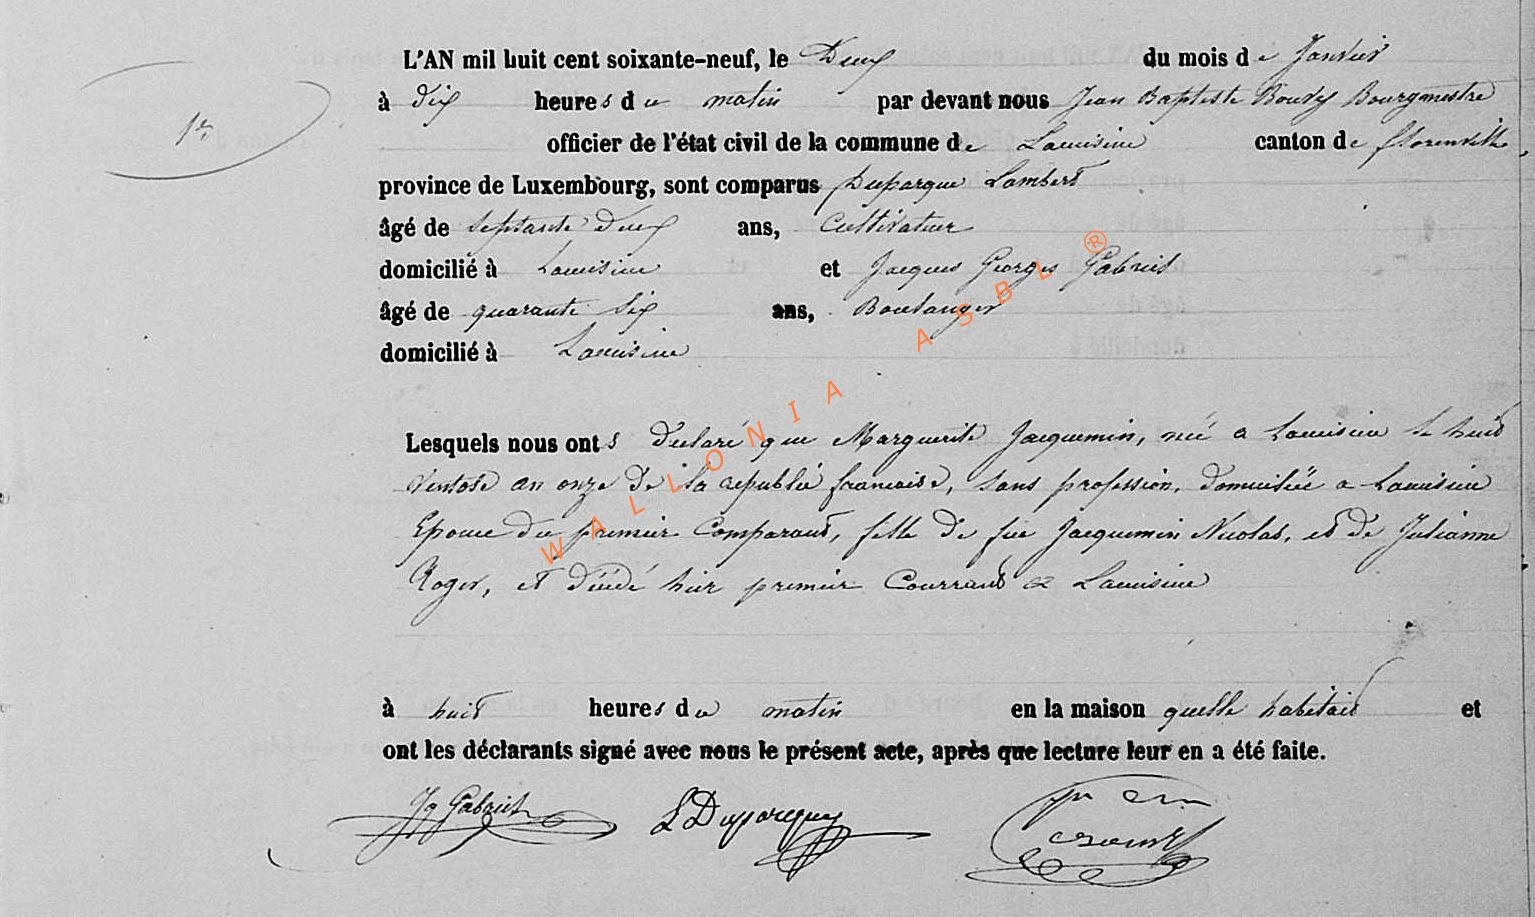 L'AN mil huit cent soixante-neuf, le Deux du mois de Janvier
1er
à dix heures du matin par devant nous Jean Baptiste Bourgmestre
officier de l'état civil de la commune de Lacuisine canton de florenville,
province de Luxembourg, sont comparus Duparque Lambert
âgé de septante deux ans, Cultivateur
domicilié à Lacuisine et Jacques Georges Gabriel
âgé de quarante six ans, Boulanger
domicilié à Lacuisine
WALLONIA ASBL ®
Lesquels nous ont déclaré que Marguerite Jacquemin, née a Lacuisine le huit
Ventose an onze de la republie francaise, sans profession, domiciliée a Lacuisine
Epouse du premier Comparant, fille de feu Jacquemin Nicolas, et de Julianne
Roger, et décédé hier premier Courrant a Lacuisine
à huit heures du matin en la maison quelle habitait et
ont les déclarants signé avec nous le présent acte, après que lecture leur en a été faite.
Jq Gabriel L Duparque